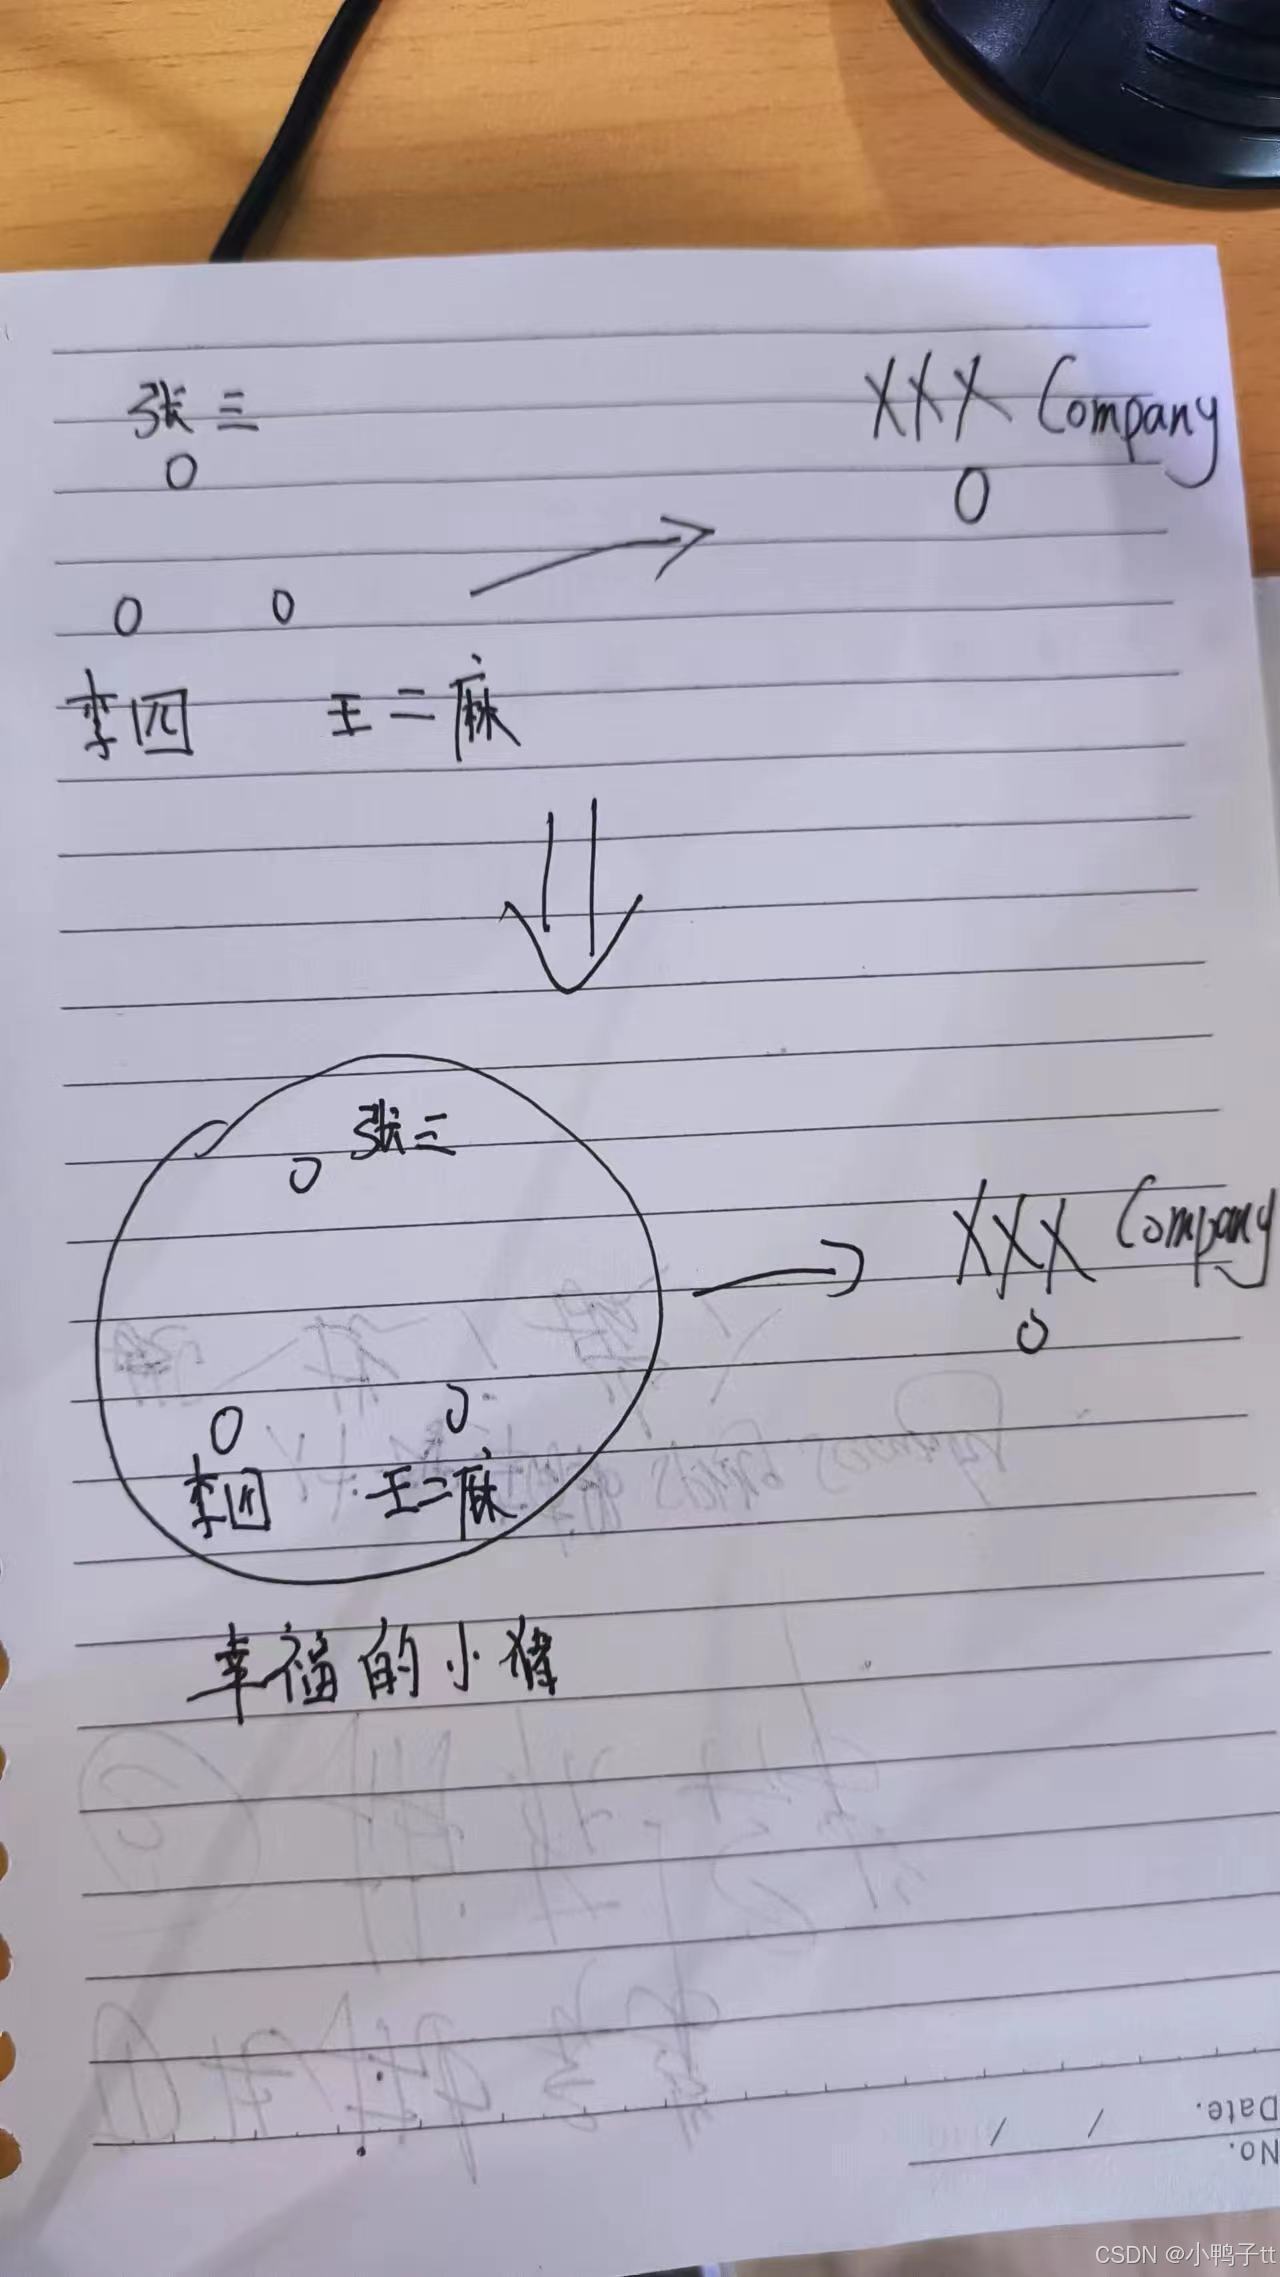 张三
XXX Company
O
O
O O
李四 王二麻
张三
O
XXX Company
O
O O
李四 王二麻
幸福的小猪
Date.
No.
CSDN @小鸭子tt